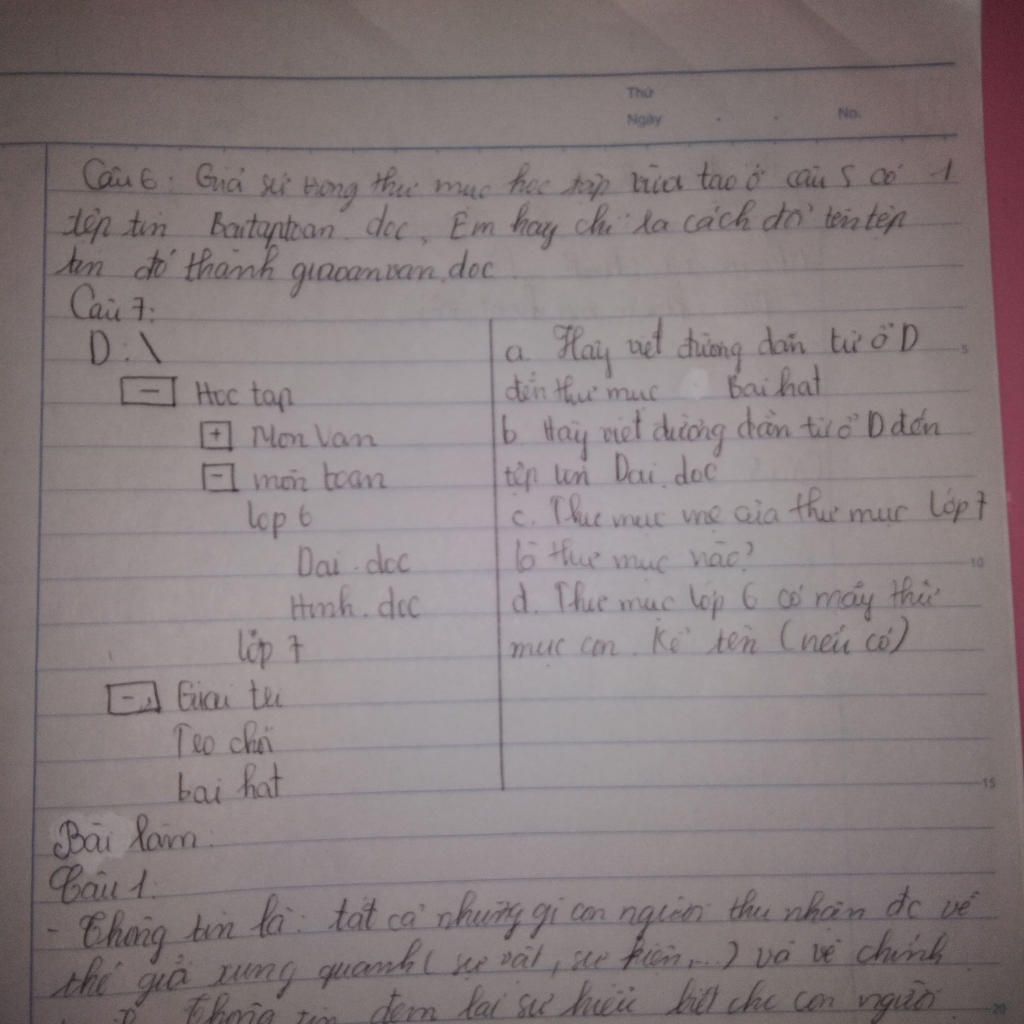 Thứ
Ngày No.
Câu 6: Giả sử trong thư mục học tập vừa tạo ở câu 5 có 1
tệp tin Baitaptoan.doc, Em hãy chỉ ra cách đổi tên tệp
tin đó thành giaoanvan.doc
Câu 7:
D:\
- Hoc tap
+ Mon Van
- môn toan
lop 6
Dai.doc
Hinh.doc
lớp 7
- Giai tri
Tro chơi
bai hat
a. Hãy viết đường dẫn từ ổ D 5
đến thư mục Bai hat
b. Hãy viết đường dẫn từ ổ D đến
tệp tin Dai.doc
c. Thư mục mẹ của thư mục lớp 7
là thư mục nào? 10
d. Thư mục lớp 6 có mấy thư
mục con. Kể tên (nếu có)
15
Bài làm:
Câu 1:
- Thông tin là: tất cả những gì con người thu nhận đc về
thế giới xung quanh (sự vật, sự kiện,...) và về chính
Thông tin đem lại sự hiểu biết cho con người 20